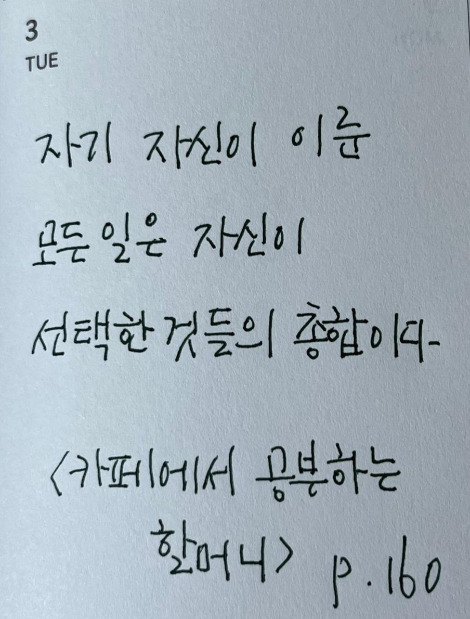 3
TUE
자기 자신이 이룬
모든 일은 자신이
선택한 것들의 총합이다-
<카페에서 공부하는
할머니> p.160